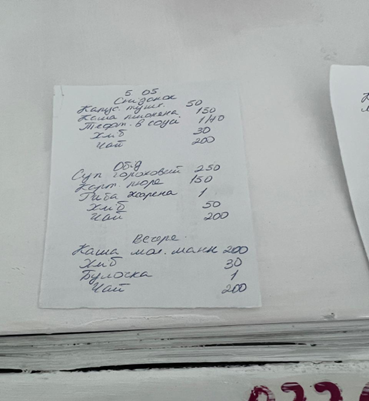 5 05
Сніданок
Капус. туш. 50
Каша пшонена 150
Тефт. в соусі 1/40
Хліб 30
Чай 200
Обід
Суп гороховий 250
Карт. пюре 150
Риба жарена 1
Хліб 50
Чай 200
Вечеря
Каша мол. манн 200
Хліб 30
Булочка 1
Чай 200